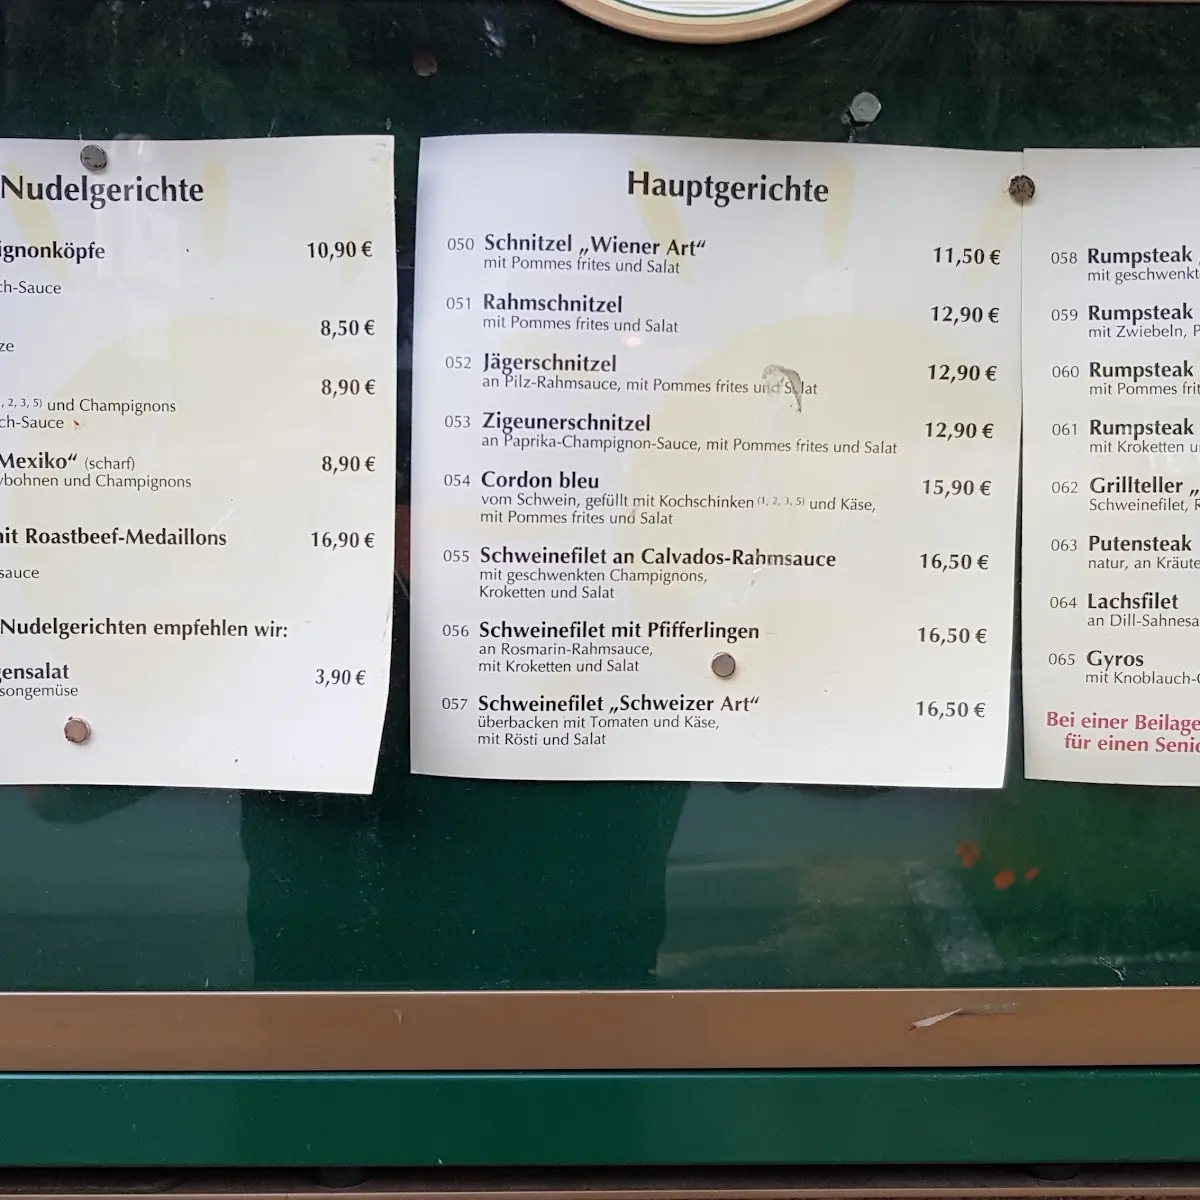 Nudelgerichte
ignonköpfe 10,90 €
ch-Sauce
8,50 €
ze
8,90 €
, 2, 3, 5) und Champignons
ch-Sauce
Mexiko“ (scharf) 8,90 €
bohnen und Champignons
it Roastbeef-Medaillons 16,90 €
sauce
Nudelgerichten empfehlen wir:
ensalat 3,90 €
songemüse
Hauptgerichte
050 Schnitzel „Wiener Art“ 11,50 €
mit Pommes frites und Salat
051 Rahmschnitzel 12,90 €
mit Pommes frites und Salat
052 Jägerschnitzel 12,90 €
an Pilz-Rahmsauce, mit Pommes frites und Salat
053 Zigeunerschnitzel 12,90 €
an Paprika-Champignon-Sauce, mit Pommes frites und Salat
054 Cordon bleu 15,90 €
vom Schwein, gefüllt mit Kochschinken (1, 2, 3, 5) und Käse,
mit Pommes frites und Salat
055 Schweinefilet an Calvados-Rahmsauce 16,50 €
mit geschwenkten Champignons,
Kroketten und Salat
056 Schweinefilet mit Pfifferlingen 16,50 €
an Rosmarin-Rahmsauce,
mit Kroketten und Salat
057 Schweinefilet „Schweizer Art“ 16,50 €
überbacken mit Tomaten und Käse,
mit Rösti und Salat
058 Rumpsteak
mit geschwenkt
059 Rumpsteak
mit Zwiebeln, P
060 Rumpsteak
mit Pommes frit
061 Rumpsteak
mit Kroketten u
062 Grillteller „
Schweinefilet, R
063 Putensteak
natur, an Kräute
064 Lachsfilet
an Dill-Sahnesa
065 Gyros
mit Knoblauch-
Bei einer Beilage
für einen Senio